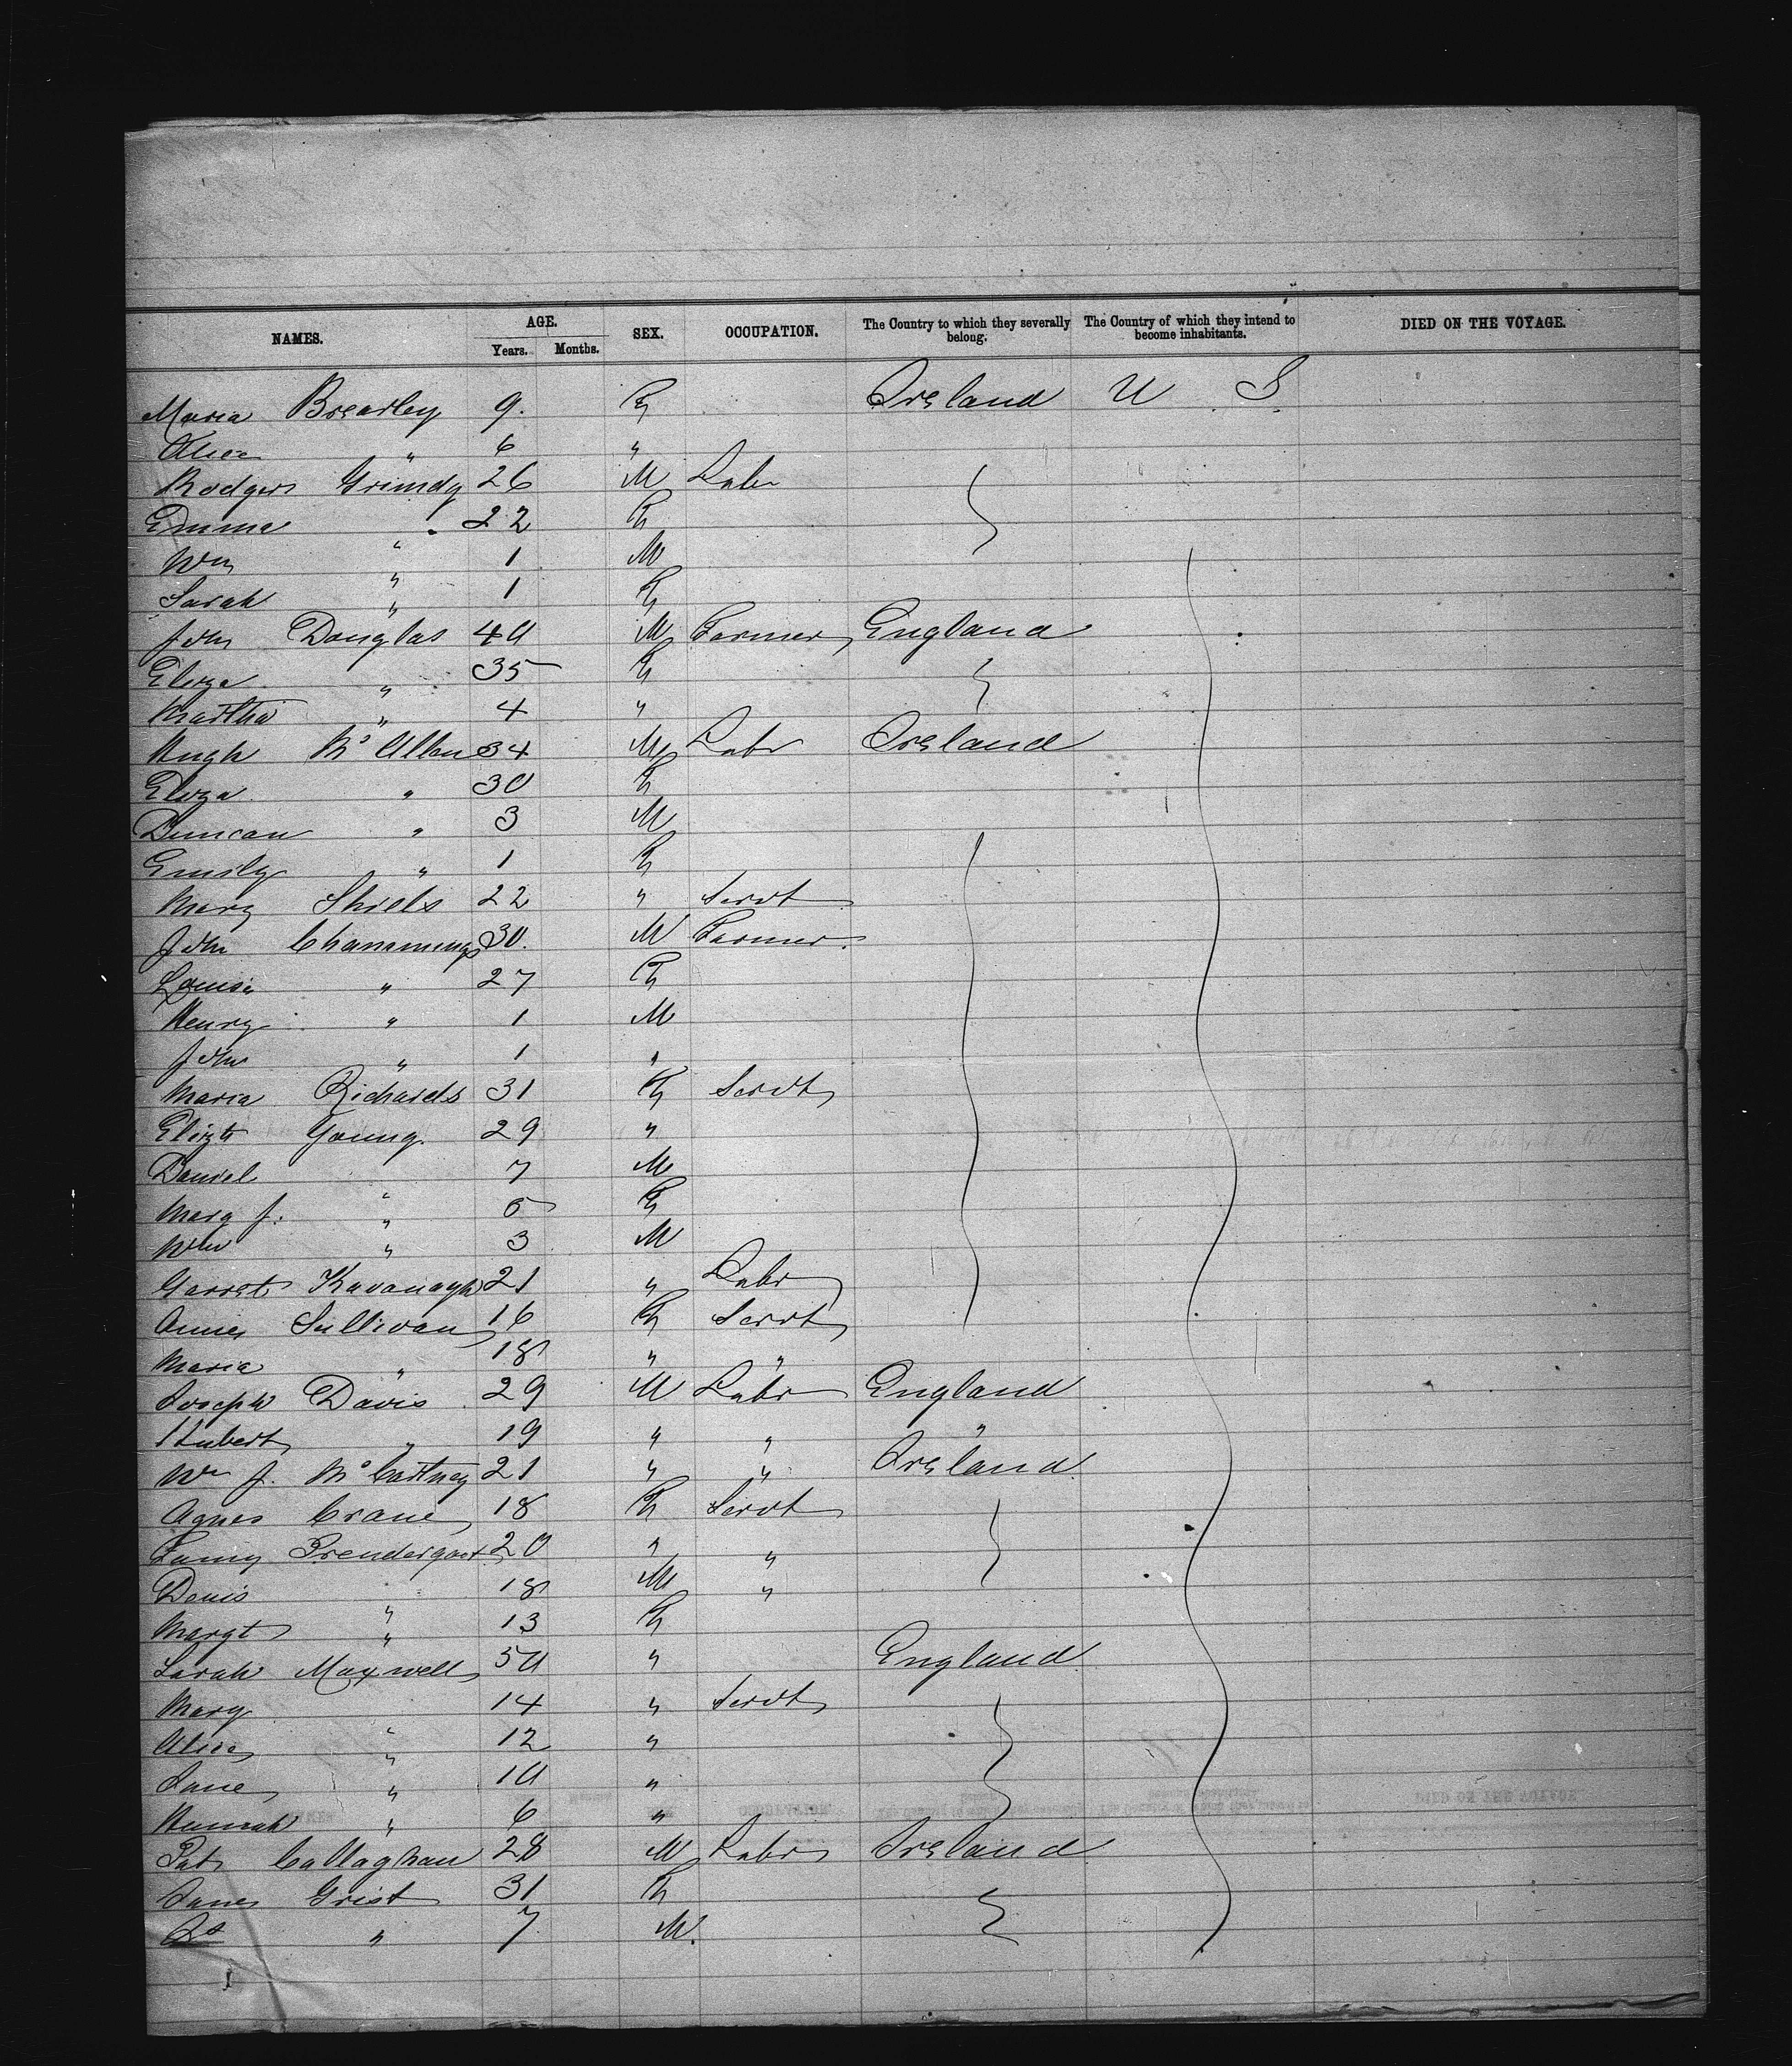 NAMES. AGE. SEX. OCCUPATION. The Country to which they severally belong. The Country of which they intend to become inhabitants. DIED ON THE VOYAGE.
Years. Months.
Maria Brearley 9. F Ireland U S
Alice " 6 "
Rodgers Grimdy 26 M Labr
Emma " 22 F
Wm " 1 M
Sarah " 1 F
John Douglas 40 M Farmer England
Eliza " 35 F
Martha " 4 "
Hugh McAllen 34 M Labr Ireland
Eliza " 30 F
Duncan " 3 M
Emily " 1 F
Mary Shiels 22 " Servt
John Chammings 30. M Farmer
Louisa " 27 F
Henry " 1 M
John " 1 "
Maria Richards 31 F Servt
Elizth Young 29 "
Daniel " 7 M
Mary J. " 5 F
Wm " 3 M
Garret Kavanagh 21 " Labr
Annie Sullivan 16 F Servt
Maria " 18 " "
Joseph Davis 29 M Labr England
Hubert " 19 " " "
Wm J. McCartney 21 " " Ireland
Agnes Crane 18 F Servt
Fanny Prendergast 20 " "
Denis " 18 M "
Margt " 13 F
Sarah Maxwell 50 " England
Mary " 14 " Servt
Alice " 12 "
Jane " 10 "
Hannah " 6 "
Pat Callaghan 28 M Labr Ireland
Jane Grist 31 F
" 7 M.